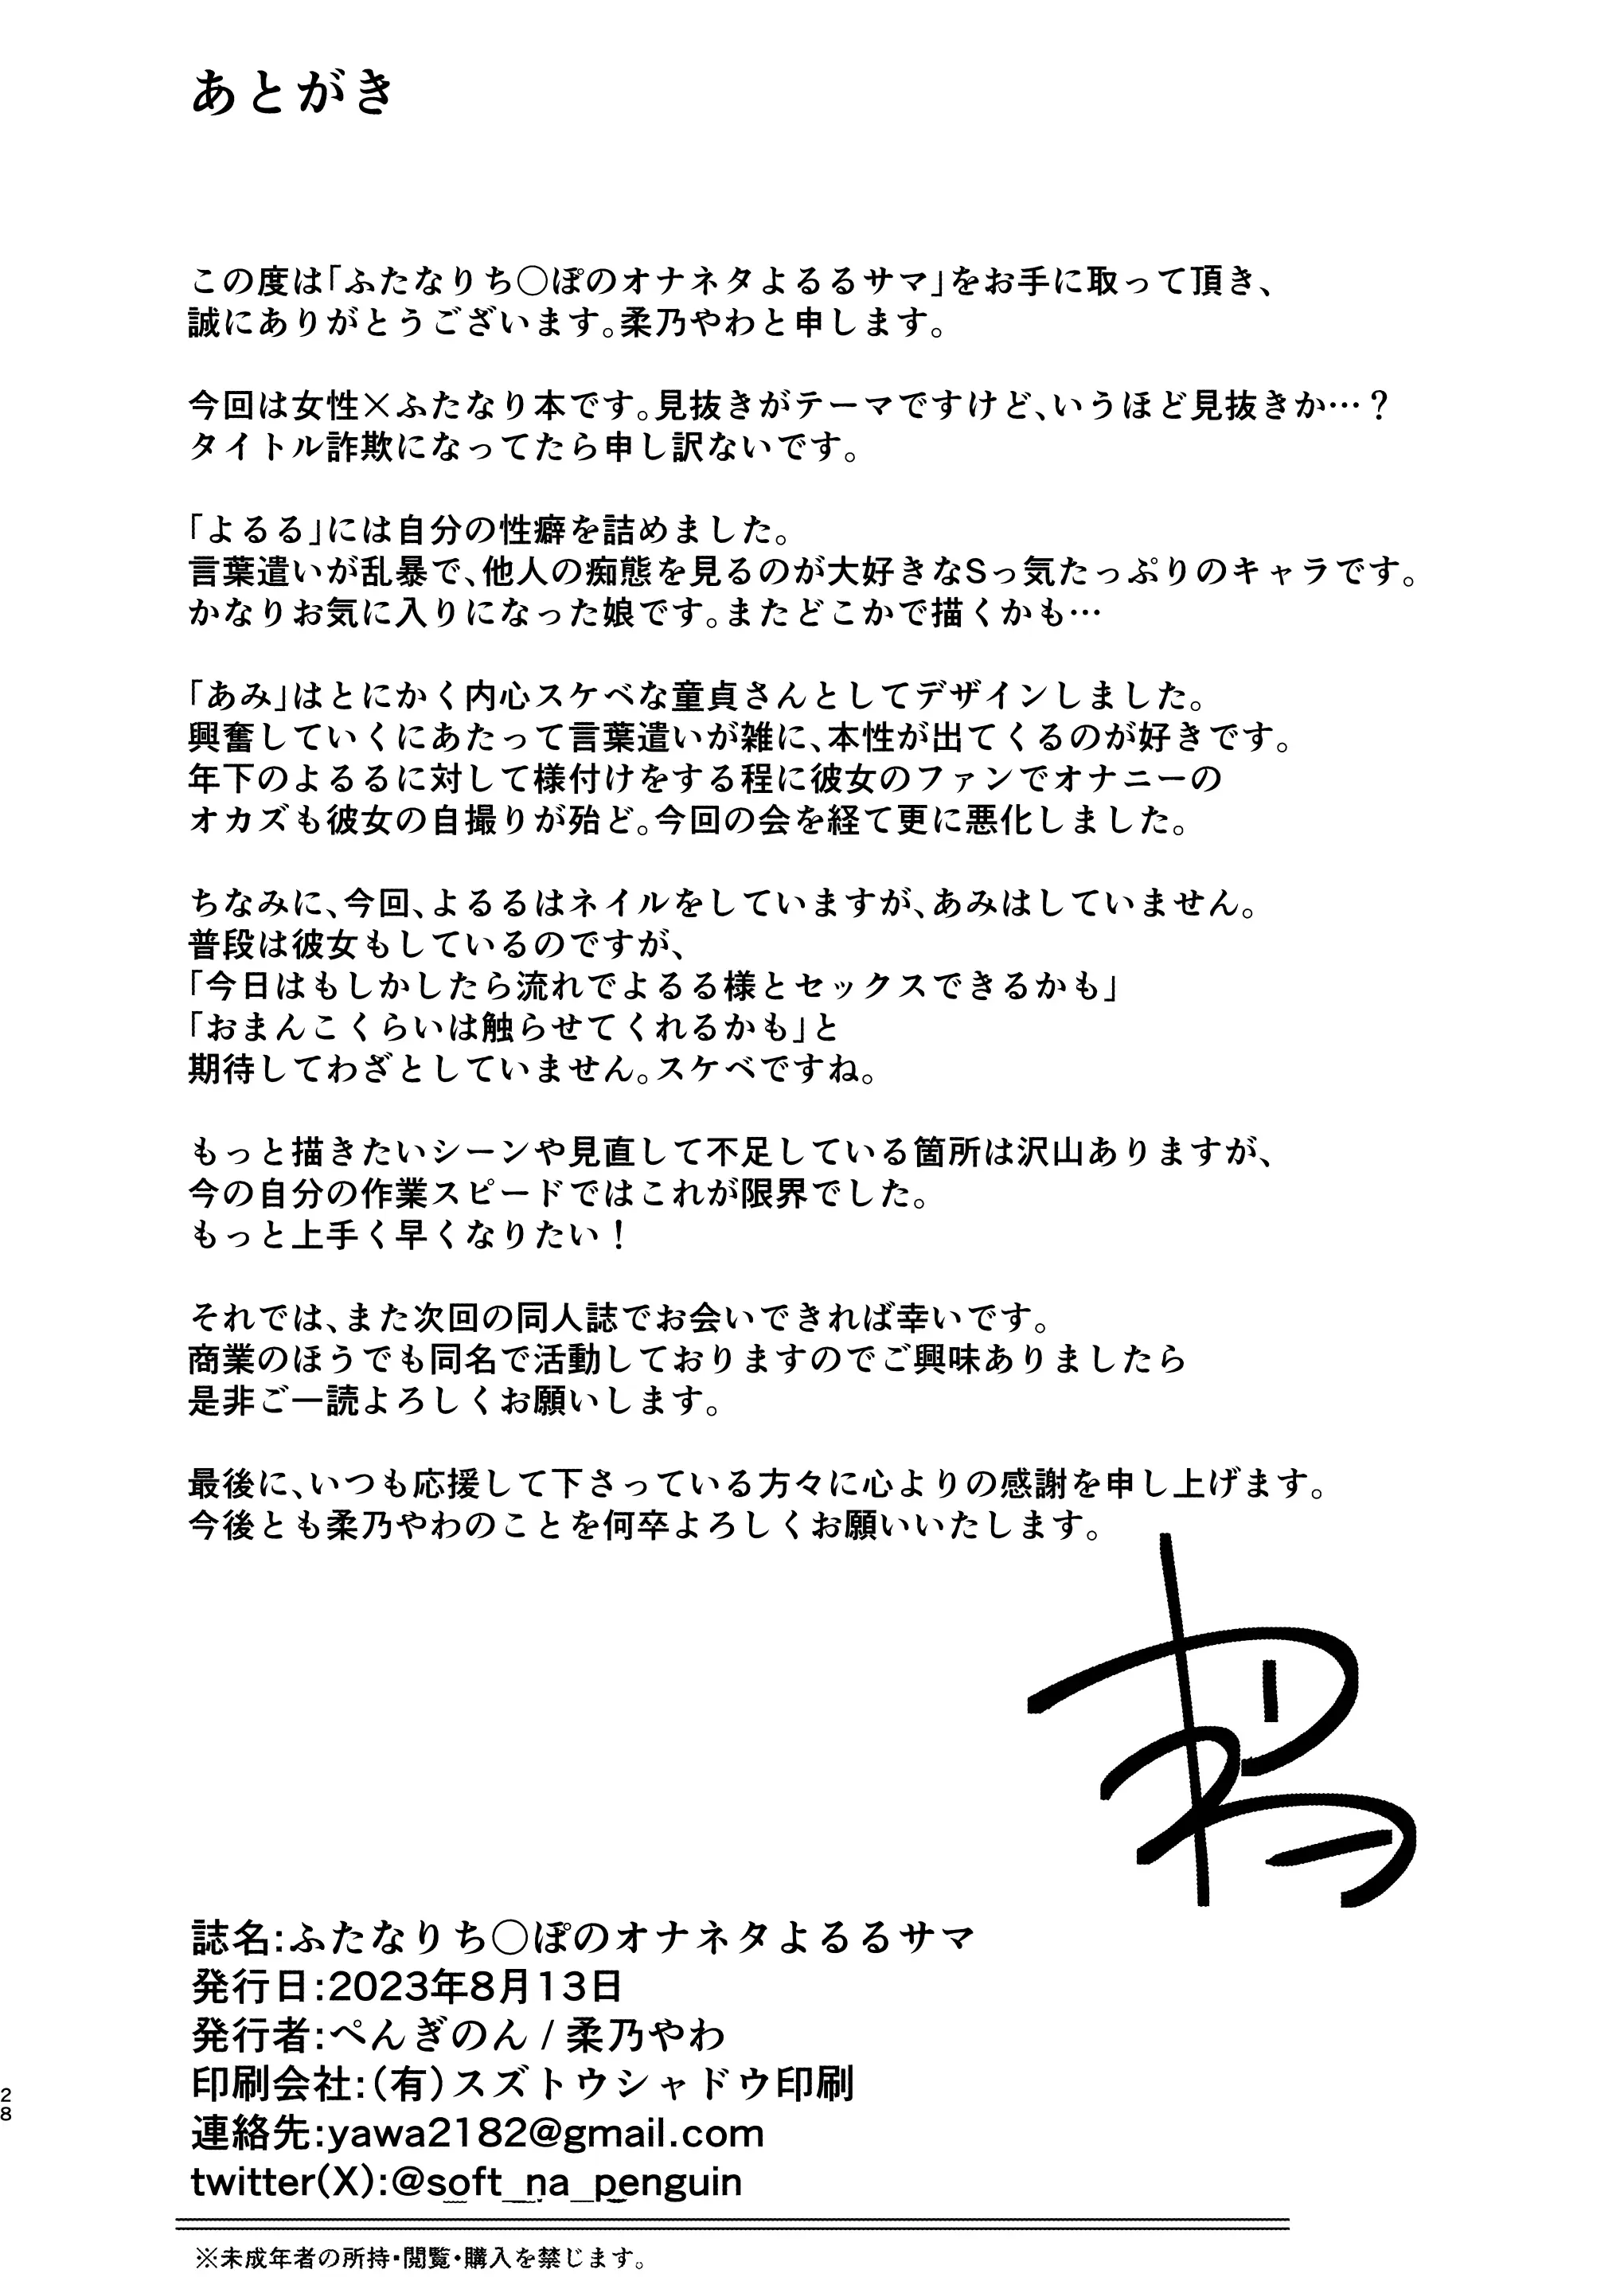 あとがき
この度は「ふたなりち〇ぽのオナネタよるるサマ」をお手に取って頂き、
誠にありがとうございます。柔乃やわと申します。
今回は女性×ふたなり本です。見抜きがテーマですけど、いうほど見抜きか…？
タイトル詐欺になってたら申し訳ないです。
「よるる」には自分の性癖を詰めました。
言葉遣いが乱暴で、他人の痴態を見るのが大好きなSっ気たっぷりのキャラです。
かなりお気に入りになった娘です。またどこかで描くかも…
「あみ」はとにかく内心スケベな童貞さんとしてデザインしました。
興奮していくにあたって言葉遣いが雑に、本性が出てくるのが好きです。
年下のよるるに対して様付けをする程に彼女のファンでオナニーの
オカズも彼女の自撮りが殆ど。今回の会を経て更に悪化しました。
ちなみに、今回、よるるはネイルをしていますが、あみはしていません。
普段は彼女もしているのですが、
「今日はもしかしたら流れでよるる様とセックスできるかも」
「おまんこくらいは触らせてくれるかも」と
期待してわざとしていません。スケベですね。
もっと描きたいシーンや見直して不足している箇所は沢山ありますが、
今の自分の作業スピードではこれが限界でした。
もっと上手く早くなりたい！
それでは、また次回の同人誌でお会いできれば幸いです。
商業のほうでも同名で活動しておりますのでご興味ありましたら
是非ご一読よろしくお願いします。
最後に、いつも応援して下さっている方々に心よりの感謝を申し上げます。
今後とも柔乃やわのことを何卒よろしくお願いいたします。
誌名:ふたなりち〇ぽのオナネタよるるサマ
発行日:2023年8月13日
発行者:ぺんぎのん / 柔乃やわ
印刷会社:(有)スズトウシャドウ印刷
連絡先:yawa2182@gmail.com
twitter(X):@soft_na_penguin
※未成年者の所持・閲覧・購入を禁じます。
28